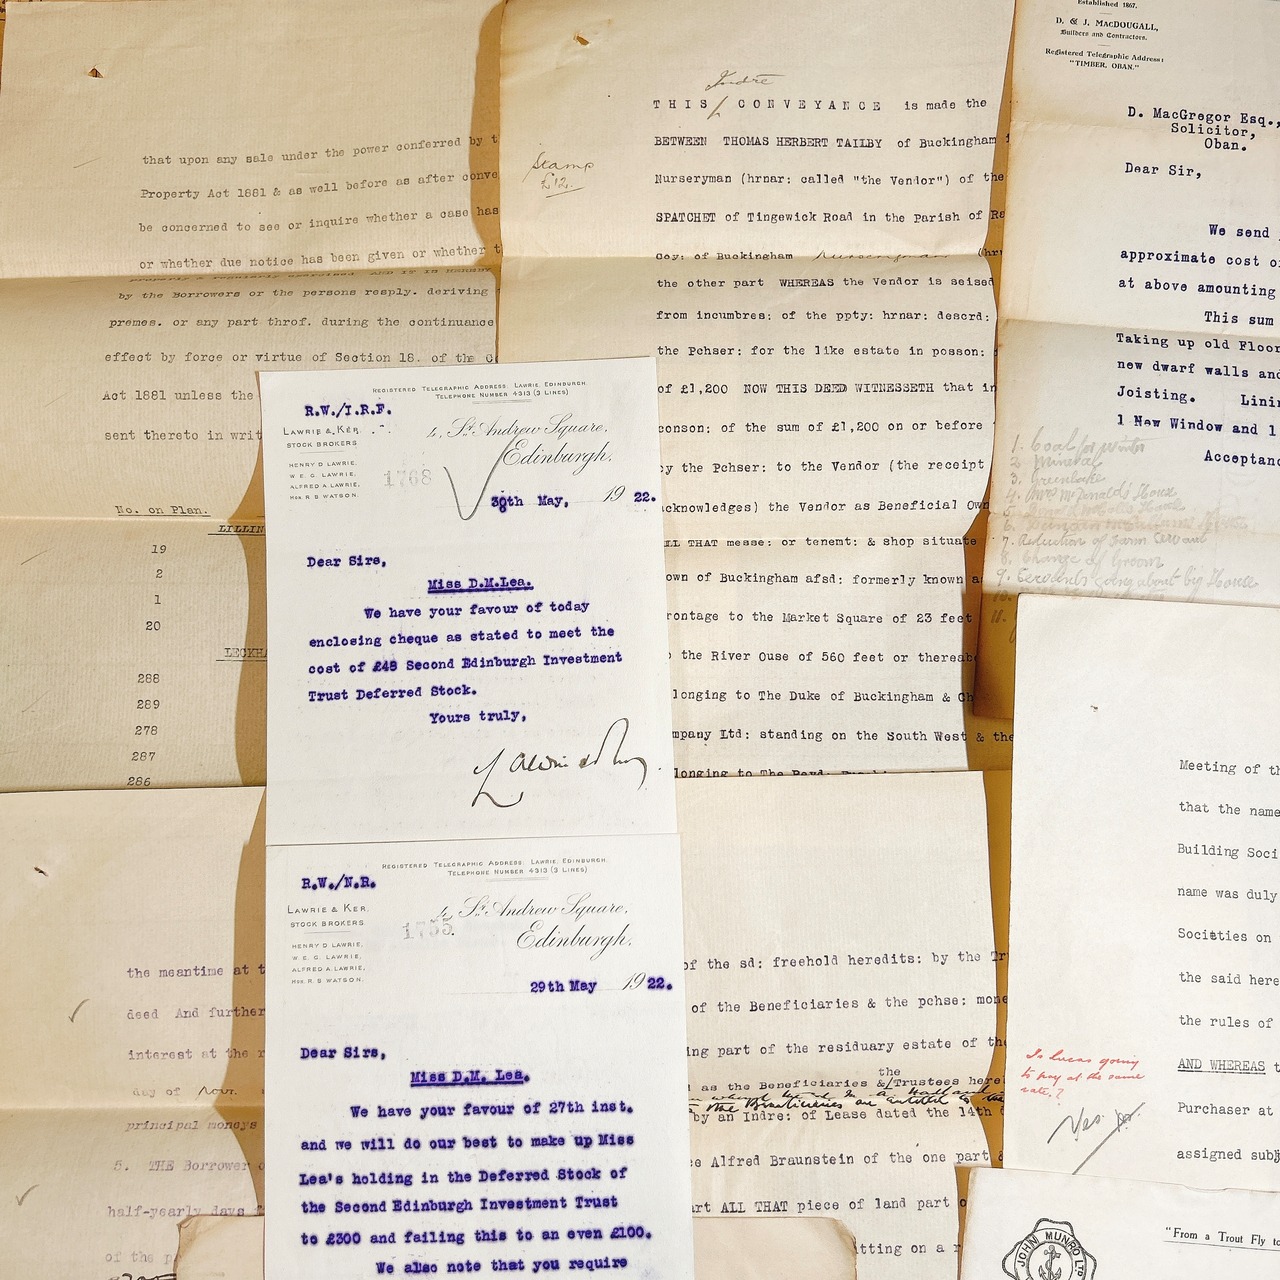 that upon any sale under the power conferred by t
Property Act 1881 & as well before as after conve
be concerned to see or inquire whether a case has
or whether due notice has been given or whether t
by the Borrowers or the persons resply. deriving
premes. or any part throf. during the continuance
effect by force or virtue of Section 18. of the C
Act 1881 unless the
sent thereto in writ
No. on Plan.
LILLIN
19
2
1
20
LECKHA
288
289
278
287
286
Indre
THIS CONVEYANCE is made the
BETWEEN THOMAS HERBERT TAILBY of Buckingham
Stamp
£12.
Nurseryman (hrnar: called "the Vendor") of the
SPATCHET of Tingewick Road in the Parish of Ra
coy: of Buckingham Nurseryman (hrn
the other part WHEREAS the Vendor is seised
from incumbres: of the ppty: hrnar: descrd:
the Pchser: for the like estate in posson:
of £1,200 NOW THIS DEED WITNESSETH that in
conson: of the sum of £1,200 on or before
by the Pchser: to the Vendor (the receipt
acknowledges) the Vendor as Beneficial Own
ALL THAT messe: or tenemt: & shop situate
own of Buckingham afsd: formerly known a
rontage to the Market Square of 23 feet
the River Ouse of 560 feet or thereab
longing to The Duke of Buckingham & Ch
mpany Ltd: standing on the South West & the
longing to The Revd.
Established 1867.
D. & J. MACDOUGALL,
Builders and Contractors.
Registered Telegraphic Address:
"TIMBER, OBAN."
D. MacGregor Esq.,
Solicitor,
Oban.
Dear Sir,
We send
approximate cost o
at above amounting
This sum
Taking up old Floor
new dwarf walls and
Joisting. Linin
1 New Window and 1
Acceptanc
1. Coal for winter
2. Mineral
3. Greenlake
4. Mrs McDonalds' House
7. Reduction of Farm Servant
8. Change of Groom
9. Servants going about big House
10.
11.
REGISTERED TELEGRAPHIC ADDRESS, LAWRIE, EDINBURGH.
TELEPHONE NUMBER 4313 (3 LINES)
R.W./I.R.F.
LAWRIE & KER.
STOCK BROKERS
4, St. Andrew Square,
Edinburgh,
HENRY D LAWRIE,
W E. G. LAWRIE,
ALFRED A. LAWRIE,
HON. R B WATSON.
1768
30th May, 1922.
Dear Sirs,
Miss D.M.Lea.
We have your favour of today
enclosing cheque as stated to meet the
cost of £48 Second Edinburgh Investment
Trust Deferred Stock.
Yours truly,
REGISTERED TELEGRAPHIC ADDRESS, LAWRIE, EDINBURGH.
TELEPHONE NUMBER 4313 (3 LINES)
R.W./N.R.
LAWRIE & KER.
STOCK BROKERS
4, St. Andrew Square,
Edinburgh,
HENRY D LAWRIE,
W E. G. LAWRIE,
ALFRED A. LAWRIE,
HON. R B WATSON.
1755
29th May 1922.
Dear Sirs,
Miss D.M. Lea.
We have your favour of 27th inst.
and we will do our best to make up Miss
Lea's holding in the Deferred Stock of
the Second Edinburgh Investment Trust
to £300 and failing this to an even £100.
We also note that you require
the meantime at t
deed And further
interest at the r
day of Novr.
principal moneys
5. THE Borrower o
half-yearly days f
of the p
of the sd: freehold heredits: by the Tr
of the Beneficiaries & the pchse: mone
ing part of the residuary estate of the
the
as the Beneficiaries &/Trustees here
by an Indre: of Lease dated the 14th
Alfred Braunstein of the one part &
art ALL THAT piece of land part o
itting on a r
Meeting of th
that the name
Building Soci
name was duly
Societies on
the said here
the rules of
AND WHEREAS t
Purchaser at
assigned subj
Is Lucas going
to pay at the same
rate?
Yes
JOHN MUNRO LTD
"From a Trout Fly to